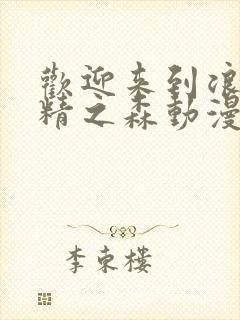 歡迎来到浪
精之森動漫
李東樓